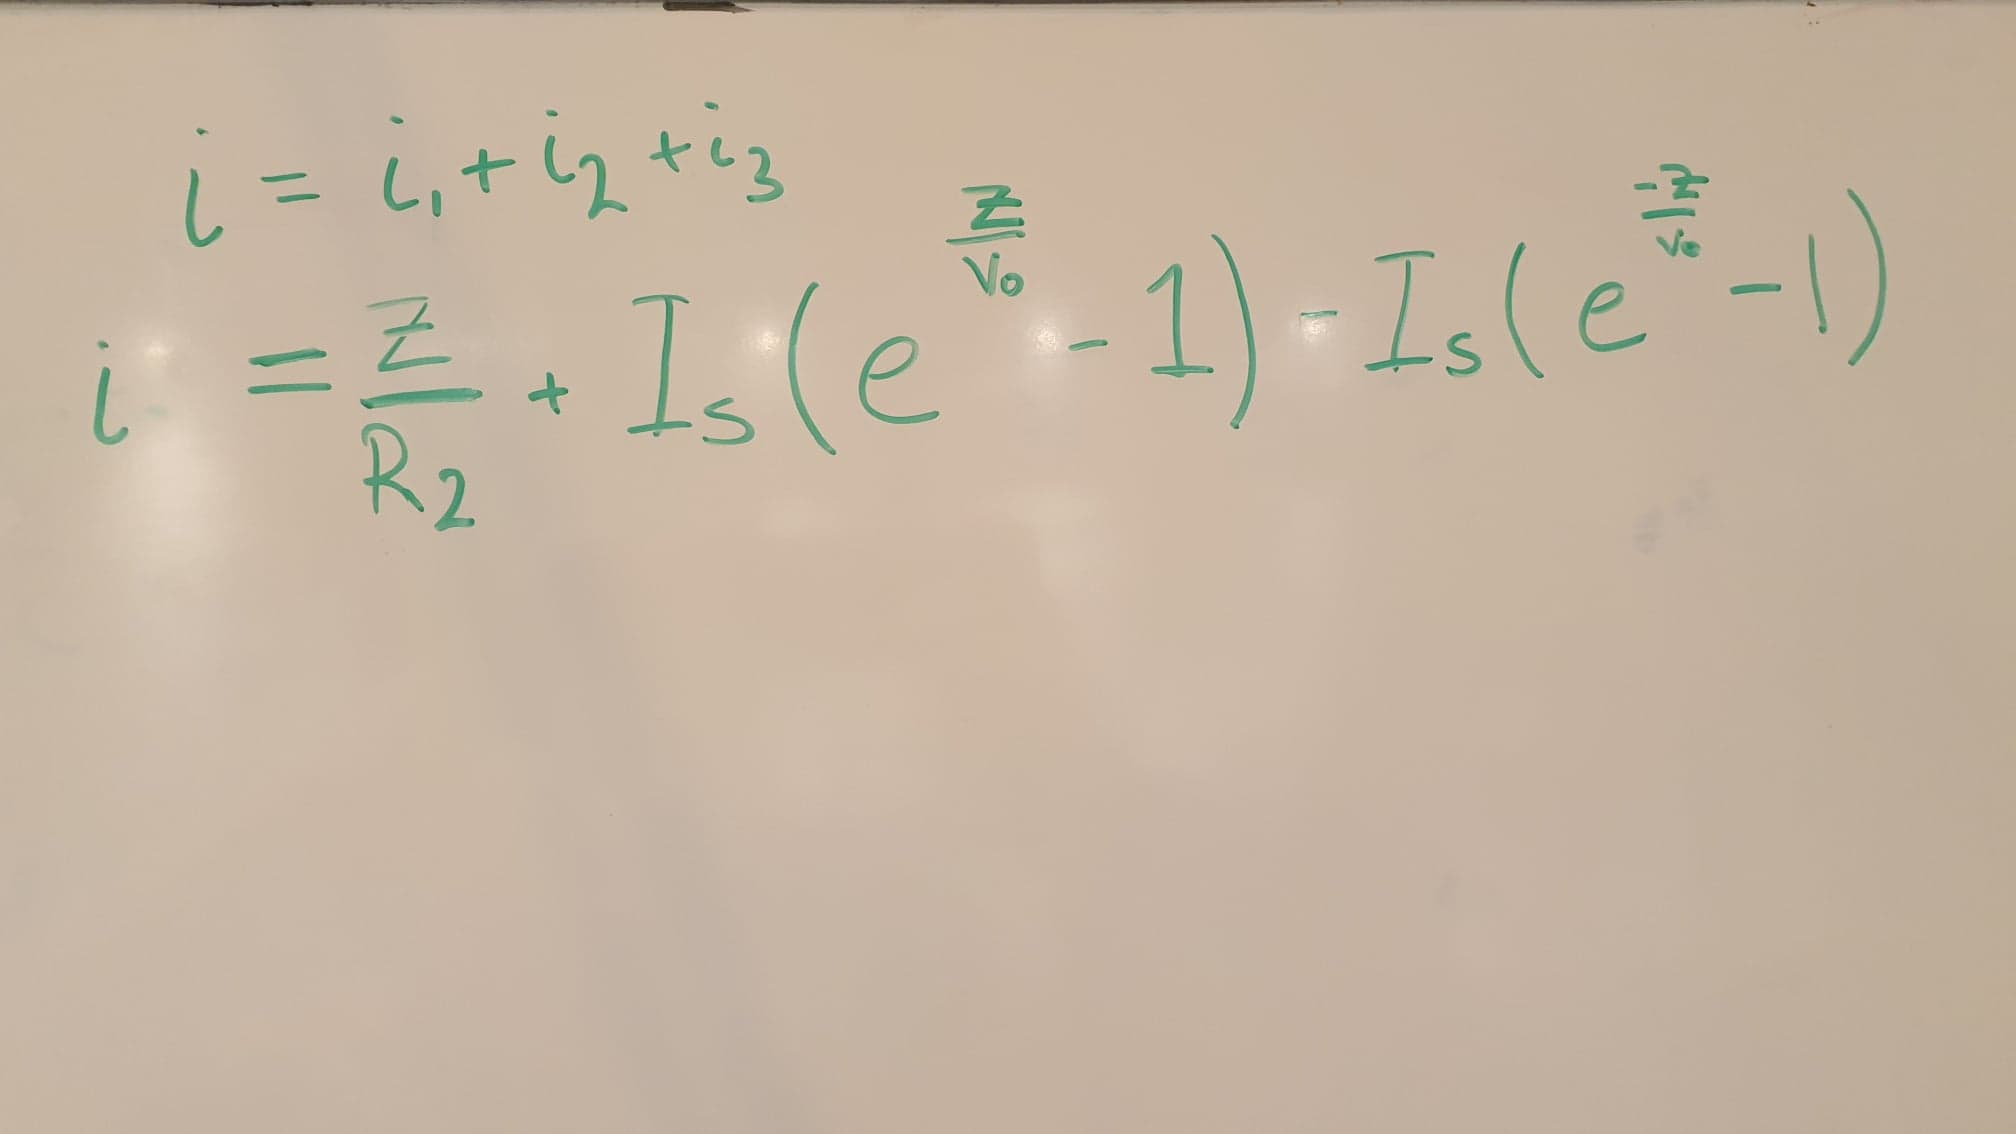 i = i₁ + i₂ + i₃
i = Z/R₂ + Iₛ(e^(Z/V₀) - 1) - Iₛ(e^(-Z/V₀) - 1)